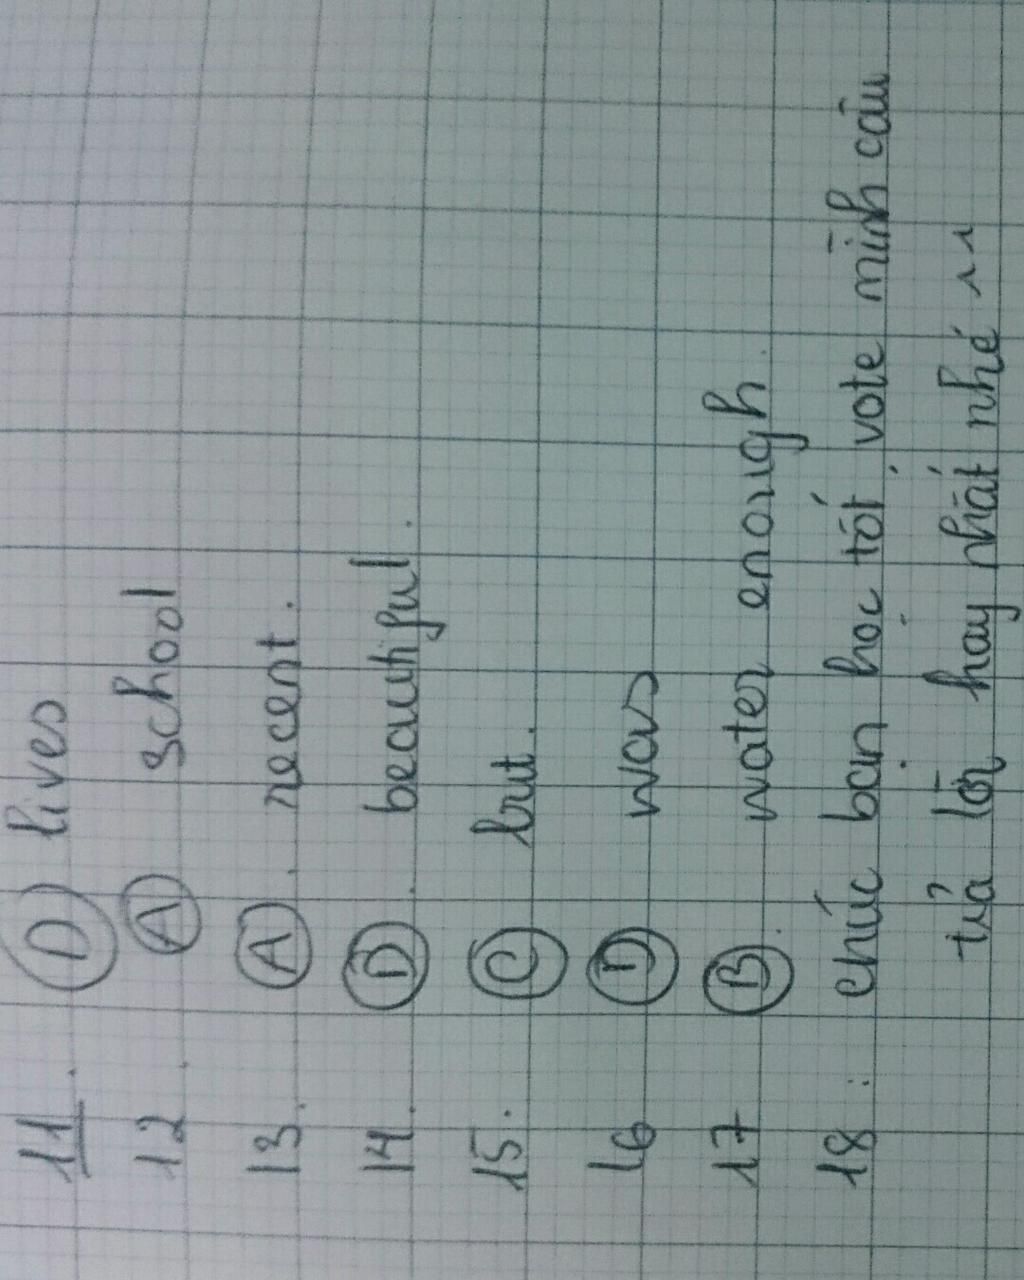 11. D lives
12. A school
13. A. recent.
14. D. beautiful.
15. C but.
16 D was
17 B. water enough.
18: chúc bạn học tốt vote mình câu
trả lời hay nhất nhé ^^